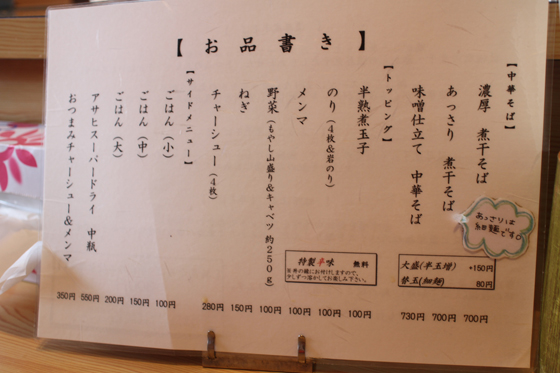 【お品書き】
【中華そば】
濃厚 煮干そば 700円
あっさり 煮干そば 700円
味噌仕立て 中華そば 730円
あっさりは
細麺です。
大盛(半玉増) +150円
替玉(細麺) 80円
【トッピング】
半熟煮玉子 100円
のり(4枚&岩のり) 100円
メンマ 100円
野菜(もやし山盛り&キャベツ 約250g) 100円
ねぎ 150円
チャーシュー(4枚) 280円
特製辛味 無料
お丼の縁にお付けしますので、
少しずつ溶かしてお楽しみ下さい。
【サイドメニュー】
ごはん(小) 100円
ごはん(中) 150円
ごはん(大) 200円
アサヒスーパードライ 中瓶 550円
おつまみチャーシュー&メンマ 350円